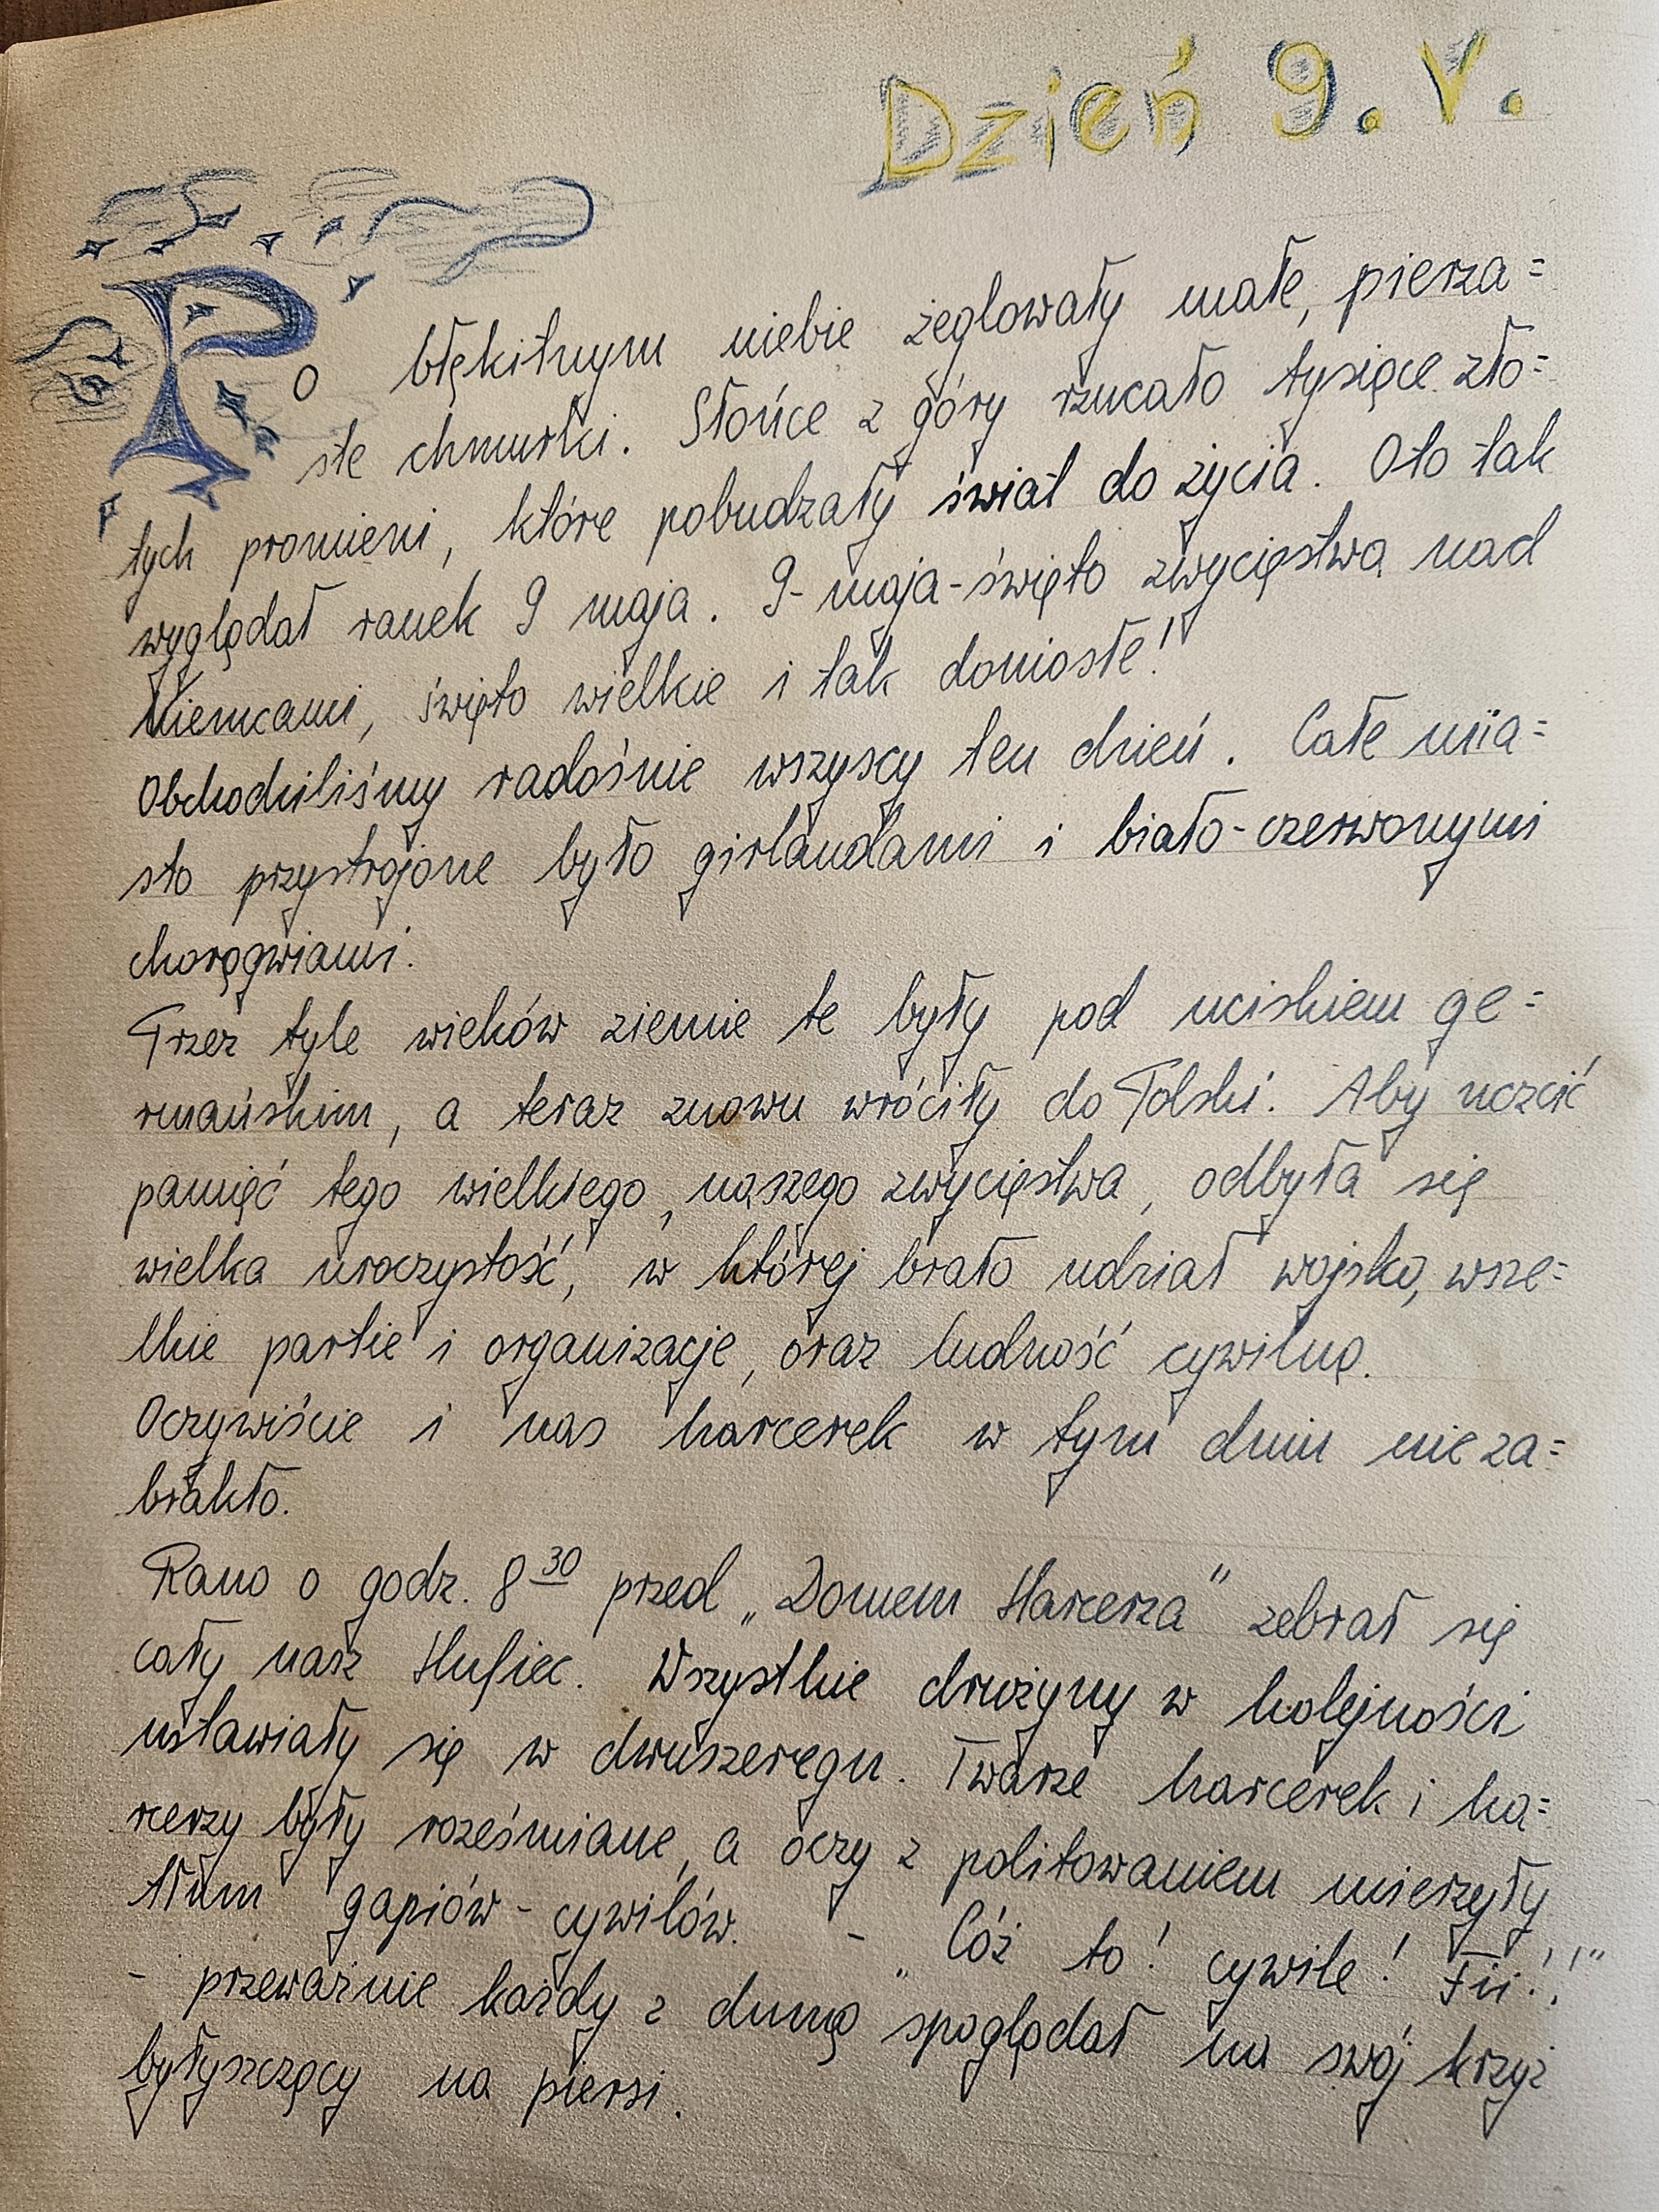 Dzień 9. V.
Po błękitnym niebie żeglowały małe, pierza=
ste chmurki. Słońce z góry rzucało tysiące zło=
tych promieni, które pobudzały świat do życia. Oto tak
wyglądał ranek 9 maja. 9-maja-święto zwycięstwa nad
Niemcami, święto wielkie i tak doniosłe!
Obchodziliśmy radośnie wszyscy ten dzień. Całe mia=
sto przystrojone było girlandami i biało-czerwonymi
chorągwiami.
Przez tyle wieków ziemie te były pod uciskiem ge=
rmańskim, a teraz znowu wróciły do Polski. Aby uczcić
pamięć tego wielkiego, naszego zwycięstwa, odbyła się
wielka uroczystość, w której brało udział wojsko, wsze=
lkie partie i organizacje, oraz ludność cywilna.
Oczywiście i nas harcerek w tym dniu nie za=
brakło.
Rano o godz. 8 30 przed „Domem Harcerza" zebrał się
cały nasz Hufiec. Wszystkie drużyny w kolejności
ustawiały się w dwuszeregu. Twarze harcerek i ha=
rcerzy były roześmiane, a oczy z politowaniem mierzyły
tłum gapiów - cywilów. - „Cóż to! cywile! Fii!!!"
- przeważnie każdy z dumą spoglądał na swój krzyż
błyszczący na piersi.